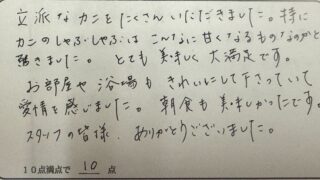 立派なカニをたくさんいただきました。特に
カニのしゃぶしゃぶは こんなに甘くなるものなのかと
驚きました。 とても美味しく大満足です。
お部屋や浴場もきれいにして下さっていて
愛情を感じました。 朝食も美味しかったです。
スタッフの皆様、ありがとうございました。
10点満点で 10 点